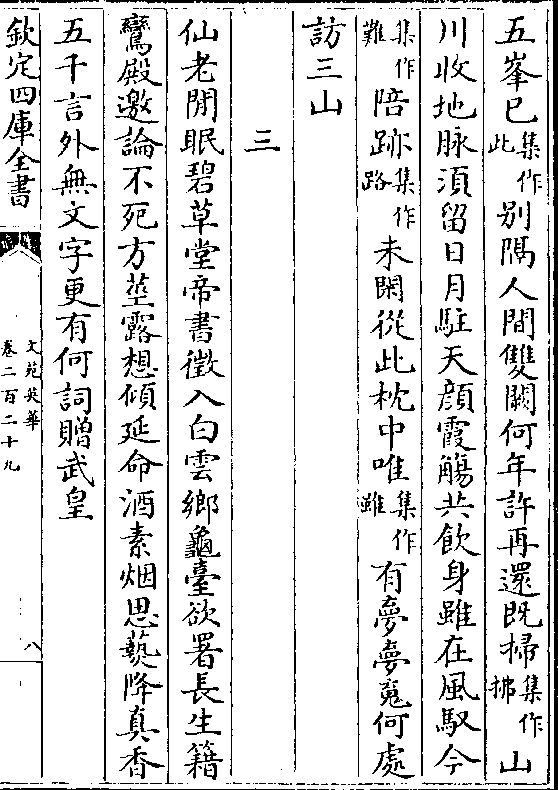 五峯已集作此別隔人間雙闕何年許再還既掃集作拂山
川收地脉湏留日月駐天顔霞觴共飲身雖在風馭今
集作難陪跡集作路尓未閑從此枕中唯集作雖有夢夢䰟何處
訪三山
三
仙老閒眠碧草堂帝書徵入白雲鄉龜臺欲署長生籍
鸞殿邀論不死方莖露想傾延命酒素烟思爇降真香
五千言外無文字更有何詞贈武皇
欽定四庫全書
文苑英華
卷二百二十九
八